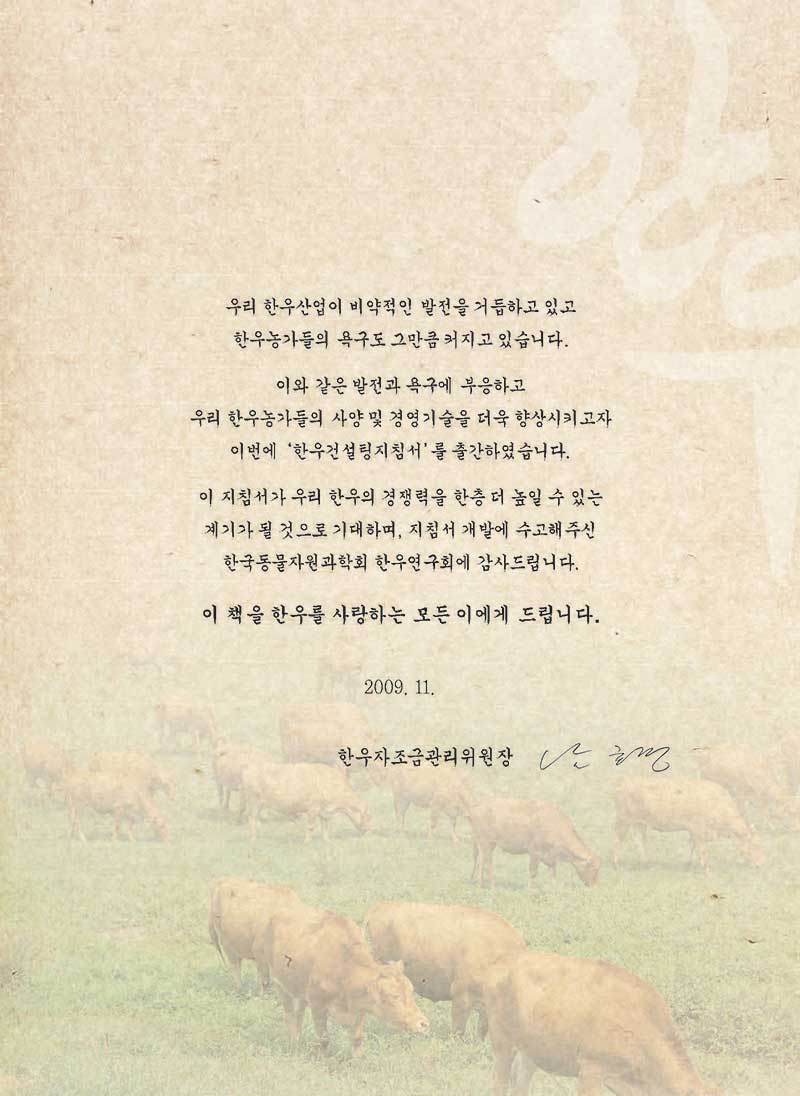 우리 한우산업이 비약적인 발전을 거듭하고 있고
한우농가들의 욕구도 그만큼 커지고 있습니다.
이와 같은 발전과 욕구에 부응하고
우리 한우농가들의 사양 및 경영기술을 더욱 향상시키고자
이번에 ‘한우컨설팅지침서’를 출간하였습니다.
이 지침서가 우리 한우의 경쟁력을 한층 더 높일 수 있는
계기가 될 것으로 기대하며, 지침서 개발에 수고해주신
한국동물자원과학회 한우연구회에 감사드립니다.
이 책을 한우를 사랑하는 모든 이에게 드립니다.
2009. 11.
한우자조금관리위원장